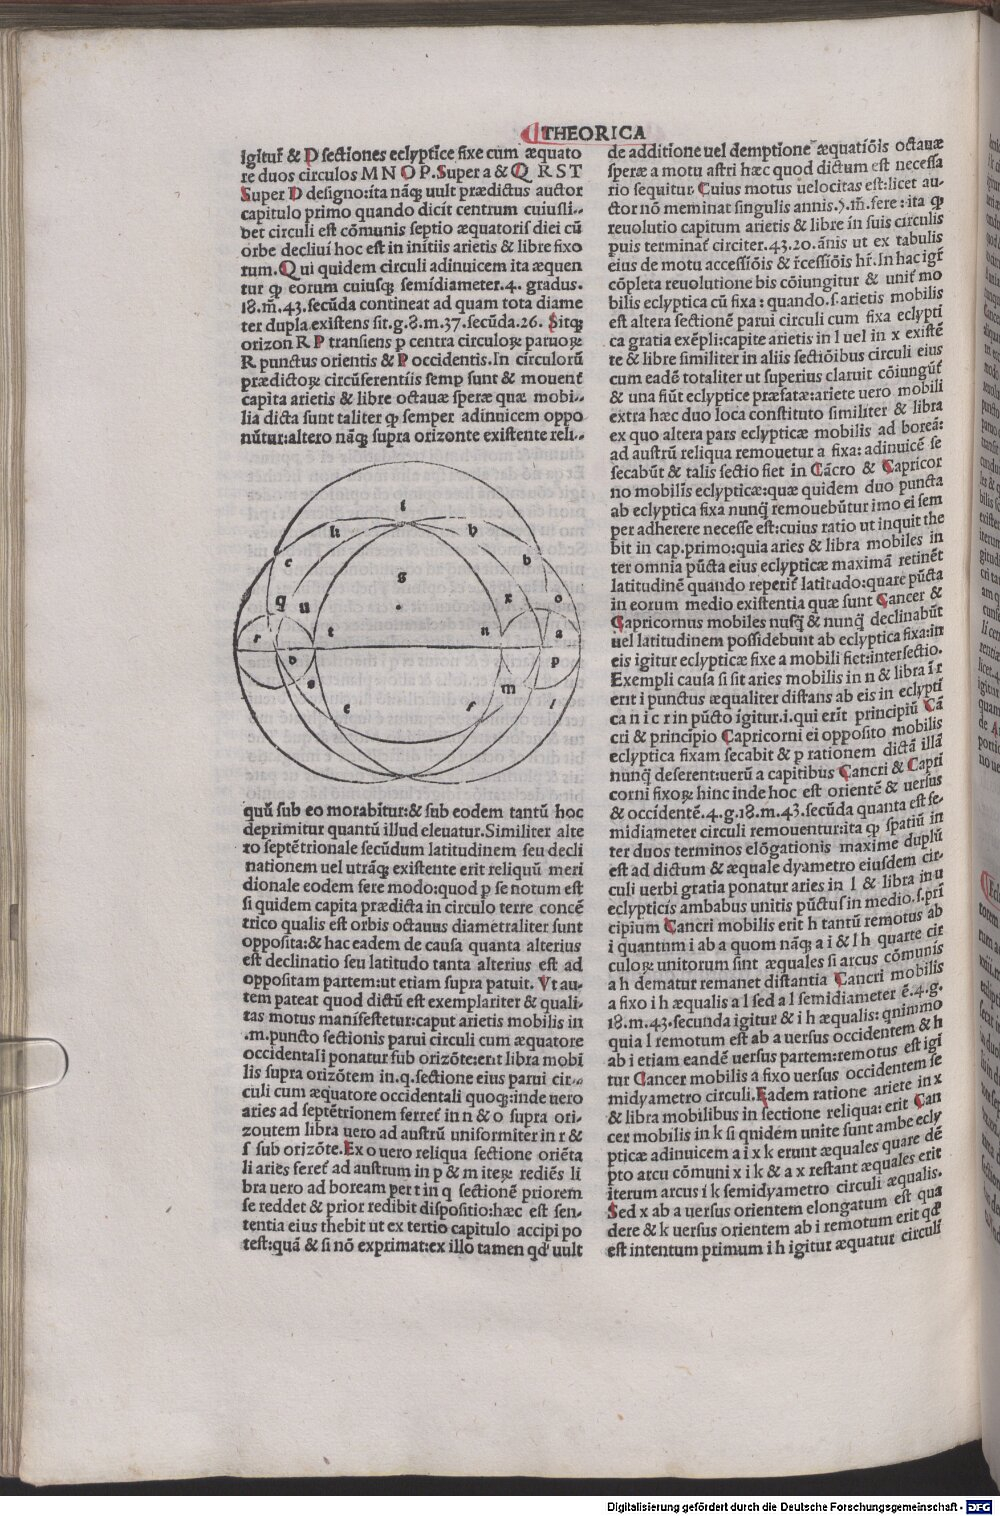 THEORICA
igitur̃ & D sectiones eclyptice fixe cum æquato
re duos circulos M N O P. Super a & Q R S T
Super D designo: ita nãq uult prædictus auctor
capitulo primo quando dicit centrum cuiusli..
bet circuli est cõmunis septio æquatoris diei cũ
orbe decliui hoc est in initiis arietis & libre fixo
rum. Qui quidem circuli adinuicem ita æquen
tur ꝙ eorum cuiusqꝫ semidiameter .4. gradus.
18. m̃. 43. secũda contineat ad quam tota diame
ter dupla existens sit. g. 8. m. 37. secũda. 26. Sitqꝫ
orizon R P transiens p centra circuloꝝ paruoꝝ:
R punctus orientis & P occidentis. In circulorũ
prædictoꝝ circũferentiis semp sunt & mouent̃
capita arietis & libre octauæ speræ quæ mobi..
lia dicta sunt taliter ꝙ semper adinuicem oppo
nũtur: altero nãqꝫ supra orizonte existente reli..
i
k h
c b
s
q u x o
r t n a
v p
s m
e f l
quũ sub eo morabitur: & sub eodem tantũ hoc
deprimitur quantũ illud eleuatur. Similiter alte
ro septẽtrionale secũdum latitudinem seu decli
nationem uel utrãqꝫ existente erit reliquũ meri
dionale eodem fere modo: quod p se notum est
si quidem capita prædicta in circulo terre concẽ
trico qualis est orbis octauus diametraliter sunt
opposita: & hac eadem de causa quanta alterius
est declinatio seu latitudo tanta alterius est ad
oppositam partem: ut etiam supra patuit. Vt au-
tem pateat quod dictũ est exemplariter & quali-
tas motus manifestetur: caput arietis mobilis in
.m. puncto sectionis parui circuli cum æquatore
occidentali ponatur sub orizõte: erit libra mobi
lis supra orizõtem in. q. sectione eius parui cir..
culi cum æquatore occidentali quoqꝫ: inde uero
aries ad septẽtrionem ferret̃ in n & o supra ori-
zoutem libra uero ad austrũ uniformiter in r &
s sub orizõte. Ex o uero reliqua sectione oriẽta
li aries feret̃ ad austrum in p & m iteꝝ rediẽs li
bra uero ad boream per t in q sectionẽ priorem
se reddet & prior redibit dispositio: hæc est sen-
tentia eius thebit ut ex tertio capitulo accipi po
test: quã & si nõ exprimat: ex illo tamen qđ uult
de additione uel demptione æquatiõis octauæ
speræ a motu astri hæc quod dictum est necessa
rio sequitur. Cuius motus uelocitas est: licet au-
ctor nõ meminat singulis annis. 7. m̃. fere: ita ꝙ
reuolutio capitum arietis & libre in suis circulis
puis terminat̃ circiter. 43. 20. ãnis ut ex tabulis
eius de motu accessiõis & r̃cessiõis hr̃. In hac igr̃
cõpleta reuolutione bis cõiungitur & unit̃ mo
bilis eclyptica cũ fixa: quando. s. arietis mobilis
est altera sectionẽ parui circuli cum fixa eclypti
ca gratia exẽpli: capite arietis in l uel in x existẽ
te & libre similiter in aliis sectiõibus circuli eius
cum eadẽ totaliter ut superius claruit cõiungũt̃
& una fiũt eclyptice præfatæ: ariete uero mobili
extra hæc duo loca constituto similiter & libra
ex quo altera pars eclypticæ mobilis ad boreã:
ad austrũ reliqua remouetur a fixa: adinuicẽ se
secabũt & talis sectio fiet in Cãcro & Capricor
no mobilis eclypticæ: quæ quidem duo puncta
ab eclyptica fixa nunq̃ remouebũtur imo ei sem
per adherere necesse est: cuius ratio ut inquit the
bit in cap. primo: quia aries & libra mobiles in
ter omnia pũcta eius eclypticæ maximã retinẽt
latitudinẽ quando reperit̃ latitudo: quare pũcta
in eorum medio existentia quæ sunt Cancer &
Capricornus mobiles nusq̃ & nunq̃ declinabũt
uel latitudinem possidebunt ab eclyptica fixa: in
eis igitur eclypticæ fixe a mobili fiet: intersectio.
Exempli causa si sit aries mobilis in n & libra ĩ r
erit i punctus æqualiter distans ab eis in eclypti
ca n i c r in pũcto igitur. i. qui erit principiũ Cã
cri & principio Capricorni ei opposito mobilis
ecliptica fixam secabit & p rationem dictã illã
nunq̃ deserent: uerũ a capitibus Cancri & Capri
corni fixoꝝ hinc inde hoc est orientẽ & uersus
& occidentẽ. 4. g. 18. m. 43. secũda quanta est se-
midiameter circuli remouentur: ita ꝙ spatiũ in
ter duos terminos elõgationis maxime duplũ
est ad dictum & æquale dyametro eiusdem cir-
culi uerbi gratia ponatur aries in l & libra in u
eclypticis ambabus unitis pũctus in medio. s. pri
cipium Cancri mobilis erit h tantũ remotus ab
i quantum i ab a quom nãqꝫ a i & l h quarte cir
culoꝝ unitorum sint æquales si arcus cõmunis
a h dematur remanet distantia Cancri mobilis
a fixo i h æqualis a l sed a l semidiameter ẽ. 4. g.
18. m. 43. secunda igitur & i h æqualis: qnimmo
quia l remotum est ab a uersus occidentem & h
ab i etiam eandẽ uersus partem: remotus est igi
tur Cancer mobilis a fixo uersus occidentem se
midyametro circuli. Eadem ratione ariete in x
& libra mobilibus in sectione reliqua: erit Can
cer mobilis in k si quidem unite sunt ambe ecly
pticæ adinuicem a i x k erunt æquales quare dẽ
pto arcu cõmuni x i k & a x restant æquales erit
iterum arcus i k semidyametro circuli æqualis.
Sed x ab a uersus orientem elongatum est qua
dere & k uersus orientem ab i remotum erit qđ
est intentum primum i h igitur æquatur circuli
Digitalisierung gefördert durch die Deutsche Forschungsgemeinschaft - DFG